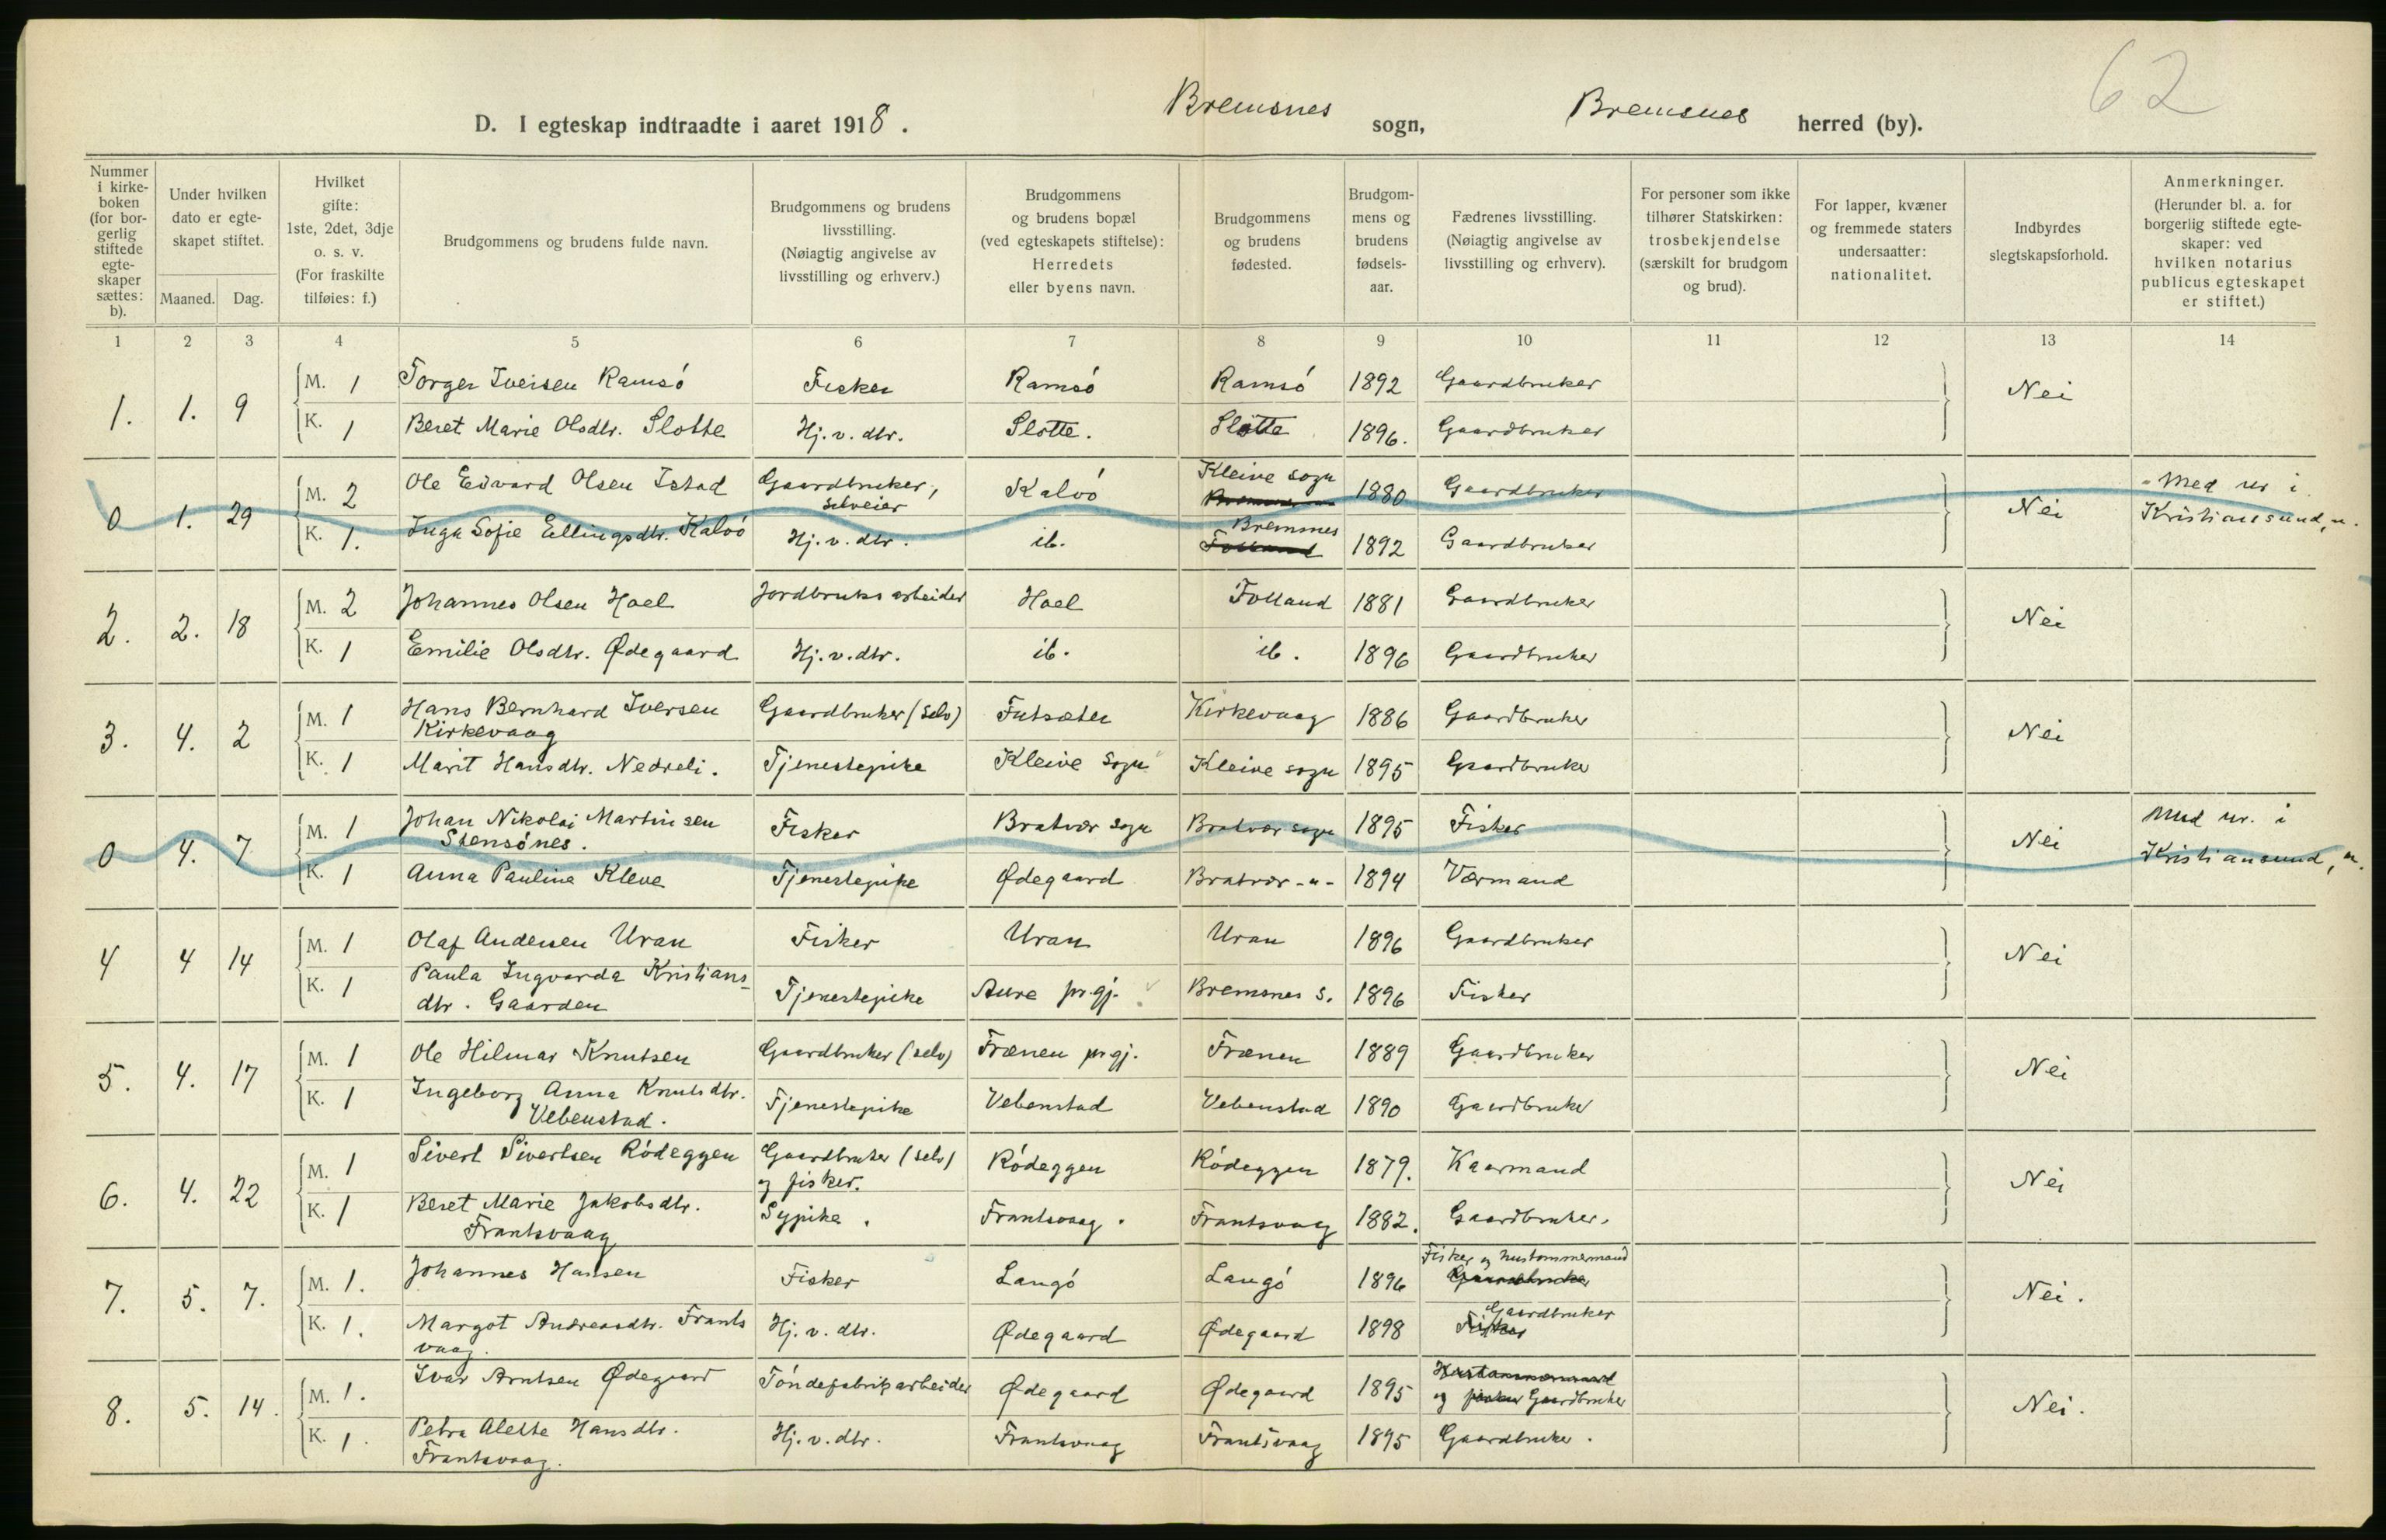 62
D. I egteskap indtraadte i aaret 1918. Bremsnes sogn, Bremsnes herred (by).
Nummer i kirke-boken (for bor-gerlig stiftede egte-skaper sættes: b).
Under hvilken dato er egte-skapet stiftet.
Maaned. Dag.
Hvilket gifte: 1ste, 2det, 3dje o. s. v. (For fraskilte tilføies: f.)
Brudgommens og brudens fulde navn.
Brudgommens og brudens livsstilling. (Nøiagtig angivelse av livsstilling og erhverv.)
Brudgommens og brudens bopæl (ved egteskapets stiftelse): Herredets eller byens navn.
Brudgommens og brudens fødested.
Brudgom-mens og brudens fødsels-aar.
Fædrenes livsstilling. (Nøiagtig angivelse av livsstilling og erhverv).
For personer som ikke tilhører Statskirken: trosbekjendelse (særskilt for brudgom og brud).
For lapper, kvæner og fremmede staters undersaatter: nationalitet.
Indbyrdes slegtskapsforhold.
Anmerkninger. (Herunder bl. a. for borgerlig stiftede egte-skaper: ved hvilken notarius publicus egteskapet er stiftet.)
1 2 3 4 5 6 7 8 9 10 11 12 13 14
1. 1. 9 M. 1 Torger Iversen Ramsó Fisker Ramsó Ramsó 1892 Gaardbruker Nei
K. 1 Beret Marie Olsdtr. Slotte Hj. v. dtr. Slotte. Slotte 1896. Gaardbruker
0 1. 29 M. 2 Ole Edvard Olsen Istad Gaardbruker, selveier Kalvó Kleive sogn 1880 Gaardbruker Nei Med ur i Kristiansund, n.
K. 1. Inga Sofie Ellingsdtr. Kalvó Hj. v. dtr. ib. Bremsnes Folland 1892 Gaardbruker
2. 2. 18 M. 2 Johannes Olsen Hoel Jordbruksarbeider Hoel Folland 1881 Gaardbruker Nei
K. 1 Emilie Olsdtr. Ødegaard Hj. v. dtr. ib. ib. 1896 Gaardbruker
3. 4. 2 M. 1 Hans Bernhard Iversen Kirkevaag Gaardbruker (selv) Futsæter Kirkevaag 1886 Gaardbruker Nei
K. 1 Marit Hansdtr. Nedreli. Tjenestepike Kleive sogn Kleive sogn 1895 Gaardbruker
0 4. 7 M. 1 Johan Nikolai Martinsen Stensónes. Fisker Bratvær sogn Bratvær sogn 1895 Fisker Nei Med ur. i Kristiansund, n.
K. 1 Anna Pauline Kleve Tjenestepike Ødegaard Bratvær -"- 1894 Værmand
4 4 14 M. 1 Olaf Andersen Uran Fisker Uran Uran 1896 Gaardbruker Nei
K. 1 Paula Ingvarda Kristians-dtr. Gaarden Tjenestepike Aure pr.gj. Bremsnes s. 1896 Fisker
5. 4. 17 M. 1 Ole Hilmar Knutsen Gaardbruker (selv) Frænen pr.gj. Frænen 1889 Gaardbruker Nei
K. 1 Ingeborg Anna Knutsdtr. Vebenstad. Tjenestepike Vebenstad Vebenstad 1890 Gaardbruker
6. 4. 22 M. 1 Sivert Sivertsen Ródeggen Gaardbruker (selv) og fisker. Ródeggen Ródeggen 1879. Kaarmand Nei
K. 1 Beret Marie Jakobsdtr. Frantsvaag Sypike. Frantsvaag. Frantsvaag 1882. Gaardbruker.
7. 5. 7. M. 1. Johannes Hansen Fisker Langó Langó 1896 Fisker og hustømmermand Gaardbruker Nei.
K. 1. Margot Andreasdtr. Frants vaag. Hj. v. dtr. Ødegaard Ødegaard 1898 Gaardbruker Fisker
8. 5. 14. M. 1. Ivar Arntsen Ødegaard Tóndefabrikarbeider Ødegaard Ødegaard 1895 Hustømmermand og fisker Gaardbruker Nei.
K. 1. Petra Alette Hansdtr. Frantsvaag. Hj. v. dtr. Frantsvaag Frantsvaag 1895 Gaardbruker.